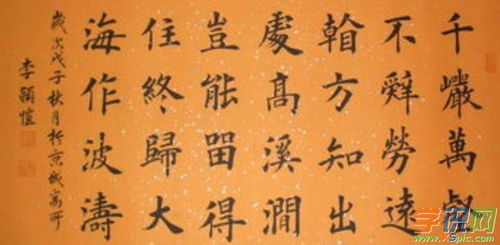 千巖萬壑
不辭勞遠
看方知出
處高溪澗
豈能留得
住終歸大
海作波濤
歲次戊子秋月於京城寓所
李